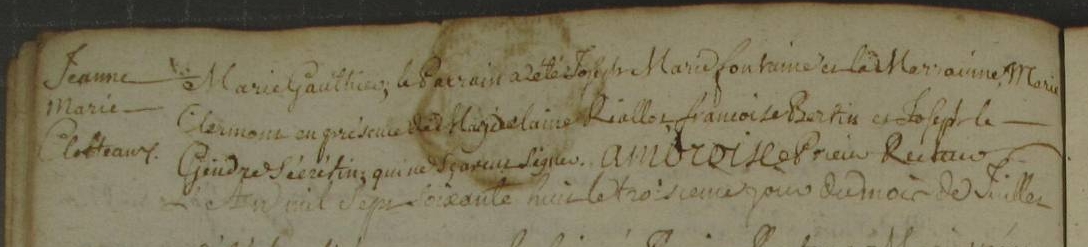 Jeanne
Marie
Marie Gauthier; le Parrain a eté Joseph Marie fontaine et la Marrainne, Marie
Clermont en présence de Magdelaine Riallot, francoise Bertin et Joseph le
Gendre qui ne scavent signer. ambroise Prieur Recteur
An mil sept soixante huit le troisieme jour du mois de Juillet